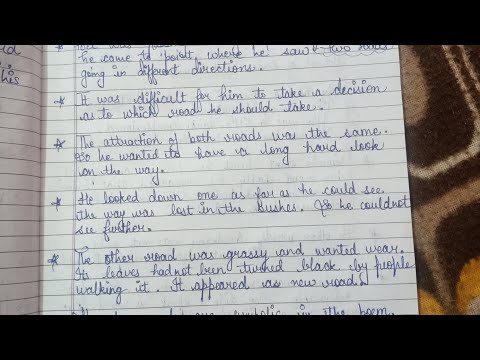 he came to point, where he saw two roads
going in different directions.
* It was difficult for him to take a decision
as to which road he should take.
* The attraction of both roads was the same.
So he wanted to have a long hard look
on the way.
* He looked down one as far as he could see.
the way was lost in the bushes. So he couldnot
see further.
* The other road was grassy and wanted wear.
Its leaves had not been turned black by people
walking it. It appeared as new road.
symbolic in the poem.
his